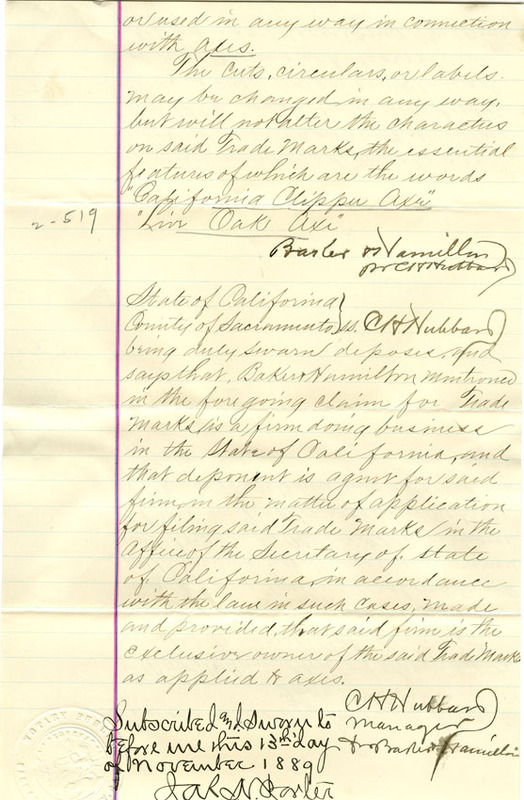 or used in any way in connection
with axes.
The cuts, circulars, or labels
may be changed in any way,
but will not alter the character
on said Trade Marks, the essential
features of which are the words
"California Clipper Axe"
"Live Oak Axe"
2-519
Baker & Hamilton
pr CH Hubbard
State of California }
County of Sacramento } ss. CH Hubbard
being duly sworn deposes and
says that, Baker & Hamilton mentioned
in the foregoing claim for Trade
Marks, is a firm doing business
in the State of California, and
that deponent is agent for said
firm, in the matter of application
for filing said Trade Marks in the
Office of the Secretary of State
of California, in accordance
with the law in such cases, made
and provided, that said firm is the
exclusive owner of the said Trade Marks
as applied to axes.
CH Hubbard
Manager
for Baker & Hamilton
Subscribed and Sworn to
before me this 13th day
of November 1889